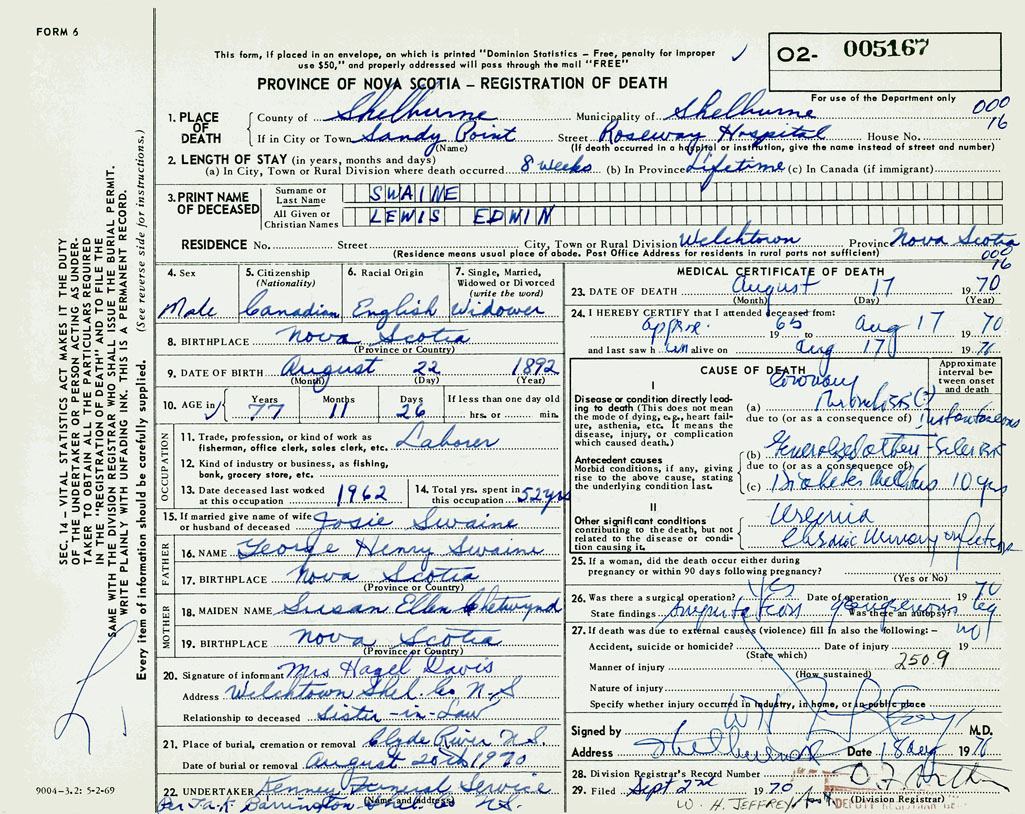 FORM 6
This form, if placed in an envelope, on which is printed "Dominion Statistics – Free, penalty for improper
use $50," and properly addressed will pass through the mail "FREE"
O2- 005167
For use of the Department only
PROVINCE OF NOVA SCOTIA – REGISTRATION OF DEATH
000
16
1. PLACE OF DEATH
County of Shelburne Municipality of Shelburne
If in City or Town Sandy Point Street Roseway Hospital House No.
(Name) (If death occurred in a hospital or institution, give the name instead of street and number)
2. LENGTH OF STAY (in years, months and days)
(a) In City, Town or Rural Division where death occurred 8 weeks (b) In Province Lifetime (c) In Canada (if immigrant)
3. PRINT NAME OF DECEASED
Surname or Last Name SWAINE
All Given or Christian Names LEWIS EDWIN
RESIDENCE No. Street City, Town or Rural Division Welchtown Province Nova Scotia
(Residence means usual place of abode. Post Office Address for residents in rural parts not sufficient)
000
16
4. Sex Male
5. Citizenship (Nationality) Canadian
6. Racial Origin English
7. Single, Married, Widowed or Divorced (write the word) Widower
8. BIRTHPLACE Nova Scotia
(Province or Country)
9. DATE OF BIRTH August 22 1892
(Month) (Day) (Year)
10. AGE in Years 77 Months 11 Days 26 If less than one day old hrs. or min.
OCCUPATION
11. Trade, profession, or kind of work as fisherman, office clerk, sales clerk, etc. Laborer
12. Kind of industry or business, as fishing, bank, grocery store, etc.
13. Date deceased last worked at this occupation 1962
14. Total yrs. spent in this occupation 52 yrs
15. If married give name of wife or husband of deceased Josie Swaine
FATHER
16. NAME George Henry Swaine
17. BIRTHPLACE Nova Scotia
(Province or Country)
MOTHER
18. MAIDEN NAME Susan Ellen Chetwynd
19. BIRTHPLACE Nova Scotia
(Province or Country)
20. Signature of informant Mrs Hazel Davis
Address Welchtown Shel. Co N.S
Relationship to deceased Sister-in-Law
21. Place of burial, cremation or removal Clyde River N.S.
Date of burial or removal August 20th 1970
22. UNDERTAKER Kenney Funeral Service
(Name and address)
Barrington N.S.
MEDICAL CERTIFICATE OF DEATH
23. DATE OF DEATH August 17 1970
(Month) (Day) (Year)
24. I HEREBY CERTIFY that I attended deceased from:
approx. 1965 to Aug 17 1970
and last saw him alive on Aug 17 1970
CAUSE OF DEATH
Approximate interval between onset and death
I
Disease or condition directly leading to death (This does not mean the mode of dying, e.g., heart failure, asthenia, etc. It means the disease, injury, or complication which caused death.)
(a) Coronary Thrombosis (?)
due to (or as a consequence of) Instantaneous
Antecedent causes
Morbid conditions, if any, giving rise to the above cause, stating the underlying condition last.
(b) Generalized
due to (or as a consequence of)
(c) Diabetes Mellitus 10 yrs
II
Other significant conditions contributing to the death, but not related to the disease or condition causing it.
Uremia
Chronic Urinary infection
25. If a woman, did the death occur either during
pregnancy or within 90 days following pregnancy?
(Yes or No)
26. Was there a surgical operation? Yes Date of operation 1970
State findings Amputation gangrenous leg Was there an autopsy? no
27. If death was due to external causes (violence) fill in also the following:–
Accident, suicide or homicide? Date of injury 19
(State which)
Manner of injury 250.9
(How sustained)
Nature of injury
Specify whether injury occurred in industry, in home, or in public place
Signed by M.D.
Address Shelburne Date 18 Aug 1970
28. Division Registrar's Record Number
29. Filed Sept 2nd 1970
(Division Registrar)
W. H. JEFFREY
DEPUTY REGISTRAR
SEC. 14 – VITAL STATISTICS ACT MAKES IT THE DUTY
OF THE UNDERTAKER OR PERSON ACTING AS UNDERTAKER TO OBTAIN ALL THE PARTICULARS REQUIRED
IN THE "REGISTRATION OF DEATH" AND TO FILE THE
SAME WITH THE DIVISION REGISTRAR WHO SHALL ISSUE THE BURIAL PERMIT.
WRITE PLAINLY WITH UNFADING INK. THIS IS A PERMANENT RECORD.
Every item of information should be carefully supplied. (See reverse side for instructions.)
9004-3.2: 5-2-69